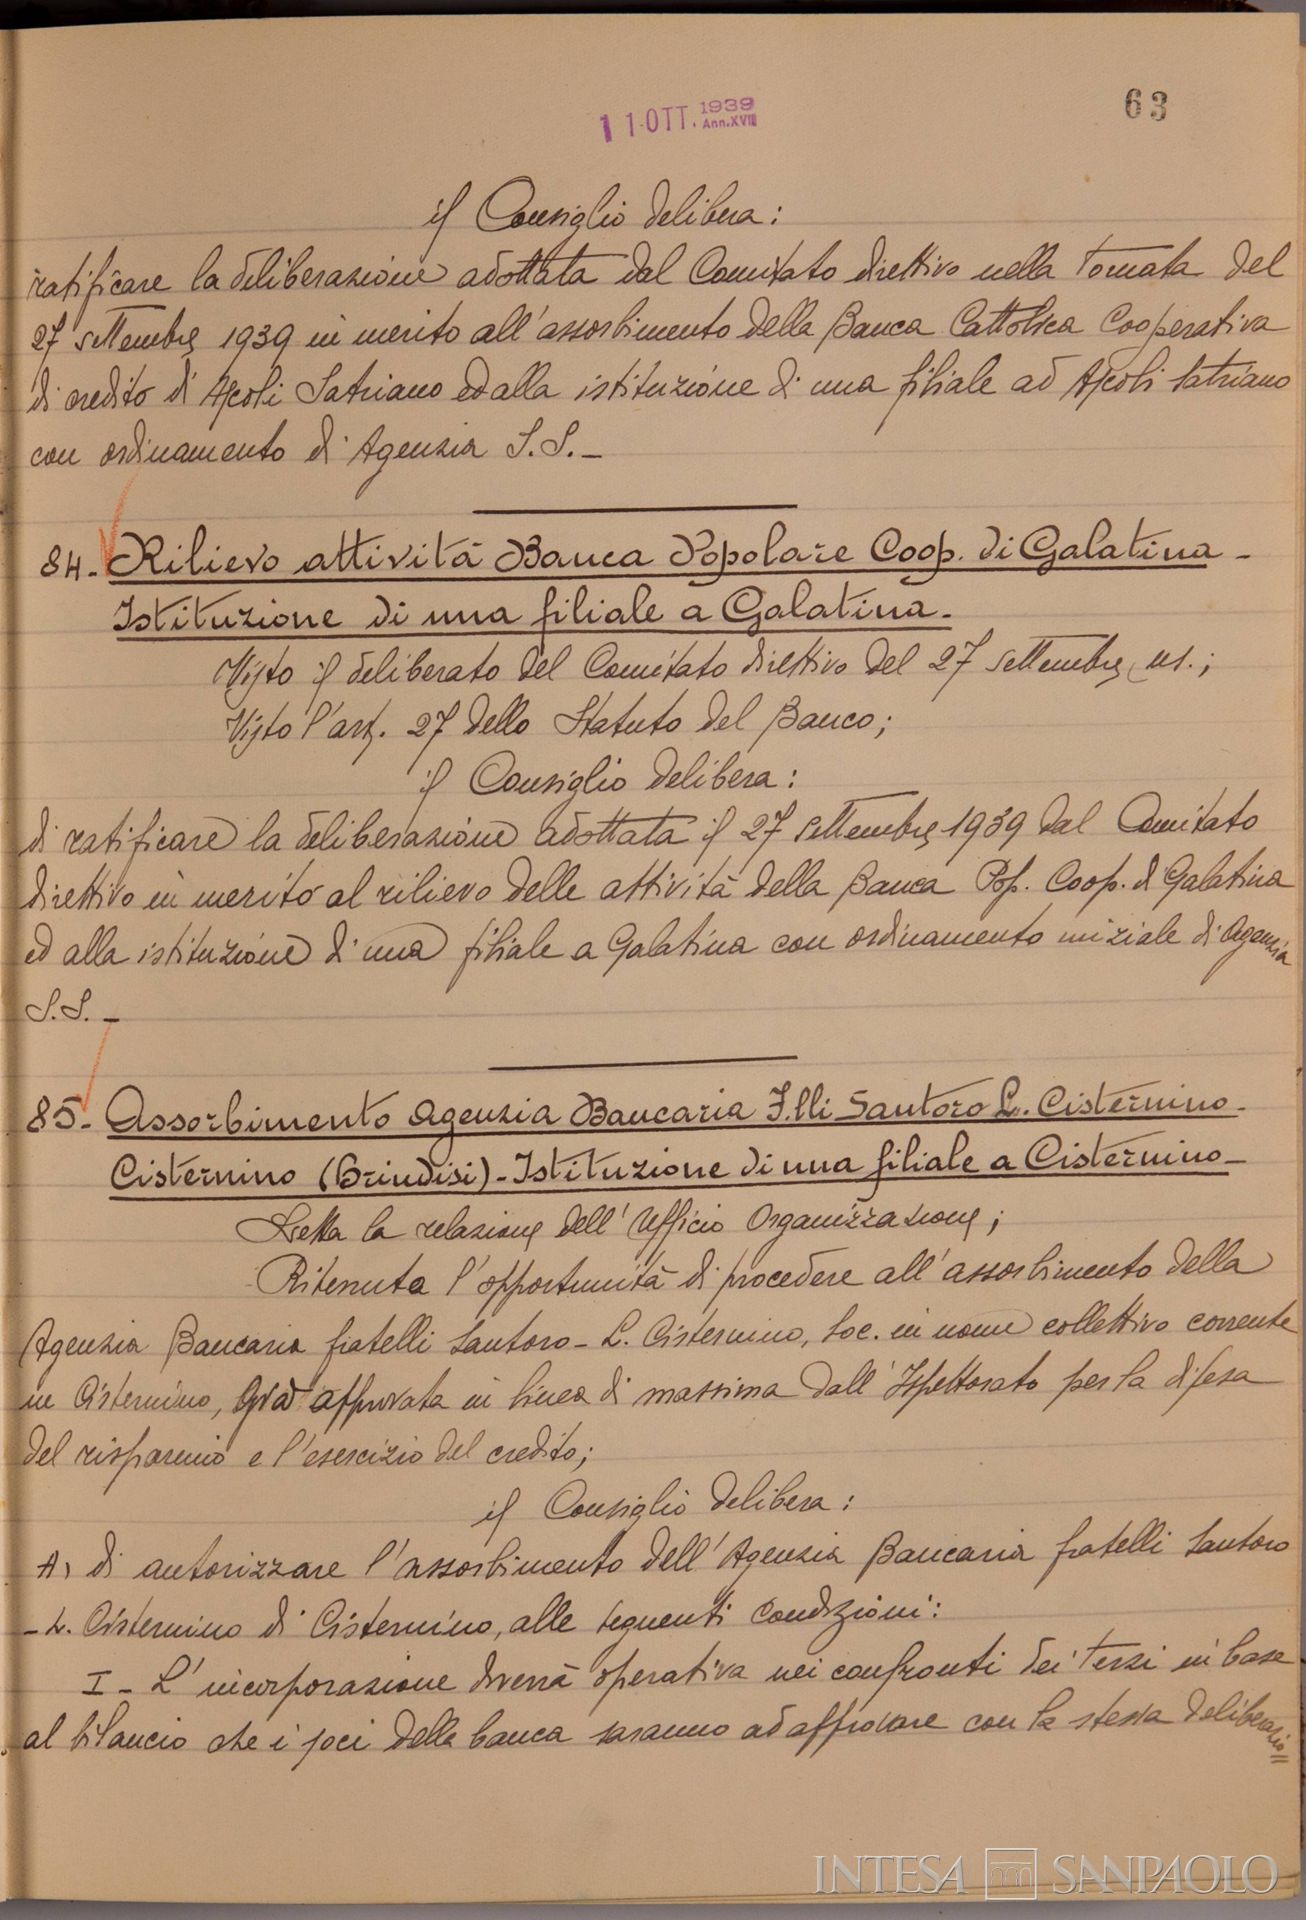 11 OTT. 1939
Ann. XVII
63
il Consiglio delibera:
ratificare la deliberazione adottata dal Comitato direttivo nella tornata del
27 settembre 1939 in merito all'assorbimento della Banca Cattolica Cooperativa
di credito di Ascoli Satriano ed alla istituzione di una filiale ad Ascoli Satriano
con ordinamento di Agenzia S.S. _
84. Rilievo attività Banca Popolare Coop. di Galatina -
Istituzione di una filiale a Galatina. -
Visto il deliberato del Comitato direttivo del 27 settembre us.;
Visto l'art. 27 dello Statuto del Banco;
il Consiglio delibera:
di ratificare la deliberazione adottata il 27 settembre 1939 dal Comitato
direttivo in merito al rilievo delle attività della Banca Pop. Coop. di Galatina
ed alla istituzione di una filiale a Galatina con ordinamento iniziale di Agenzia
S.S. _
85. Assorbimento Agenzia Bancaria F.lli Santoro L. Cisternino -
Cisternino (Brindisi) - Istituzione di una filiale a Cisternino -
Letta la relazione dell'Ufficio Organizzazione;
Ritenuta l'opportunità di procedere all'assorbimento della
Agenzia Bancaria fratelli Santoro - L. Cisternino, Soc. in nome collettivo corrente
in Cisternino, già approvata in linea di massima dall'Ispettorato per la difesa
del risparmio e l'esercizio del credito;
il Consiglio delibera:
A) di autorizzare l'assorbimento dell'Agenzia Bancaria fratelli Santoro
- L. Cisternino di Cisternino, alle seguenti condizioni:
I - L'incorporazione diverrà operativa nei confronti dei terzi in base
al bilancio che i soci della banca saranno ad approvare con la stessa deliberazio=
INTESA SANPAOLO